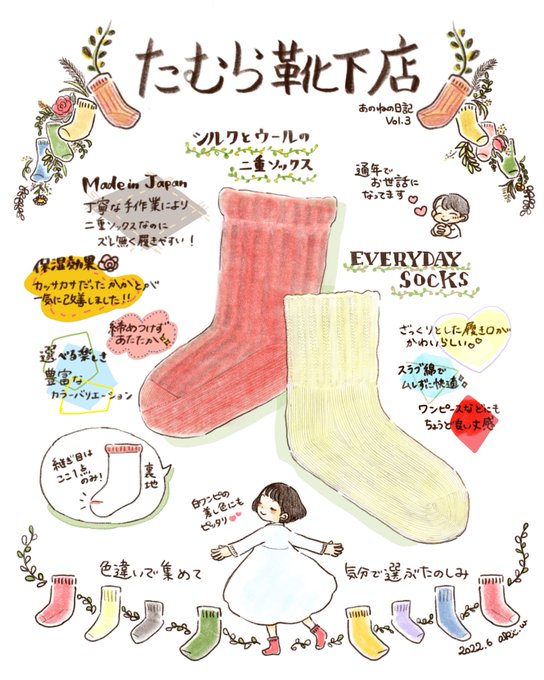 たむら靴下店
あのねの日記
Vol.3
シルクとウールの
二重ソックス
通年で
お世話に
なってます
Made in Japan
丁寧な手作業により
二重ソックスなのに
ズレ無く履きやすい!
EVERYDAY
SOCKS
保湿効果
カッサカサだったかかとが
一気に改善しました!!
締めつけず
あたたか
選べる楽しさ
豊富な
カラーバリエーション
ざっくりとした履き口が
かわいらしい。
スラブ綿で
ムレずに快適
ワンピースなどにも
ちょうど良い丈感
継ぎ目は
ココ1点
のみ!
裏地
白ワンピの
差し色にも
ピッタリ
色違いで集めて
気分で選ぶたのしみ
2022.6